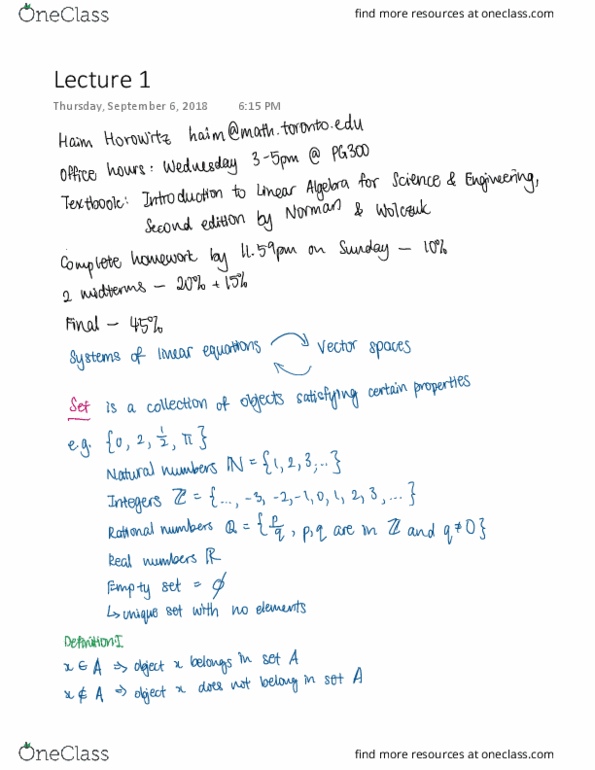 OneClass
find more resources at oneclass.com
Lecture 1
Thursday, September 6, 2018 6:15 PM
Haim Horowitz haim@math.toronto.edu
Office hours: Wednesday 3-5pm @ PG300
Textbook: Introduction to Linear Algebra for Science & Engineering,
Second edition by Norman & Wolczuk
Complete homework by 11.59pm on Sunday – 10%
2 midterms – 20% + 15%
Final – 45%
Systems of linear equations Vector spaces
Set is a collection of objects satisfying certain properties
e.g. {0, 2, 1/2, π}
Natural numbers ℕ = {1, 2, 3, ...}
Integers ℤ = {..., -3, -2, -1, 0, 1, 2, 3, ...}
Rational numbers ℚ = {p/q, p,q are in ℤ and q ≠ 0}
Real numbers ℝ
Empty set = ∅
↳ unique set with no elements
Definition:I
x ∈ A ⇒ object x belongs in set A
x ∉ A ⇒ object x does not belong in set A
OneClass
find more resources at oneclass.com